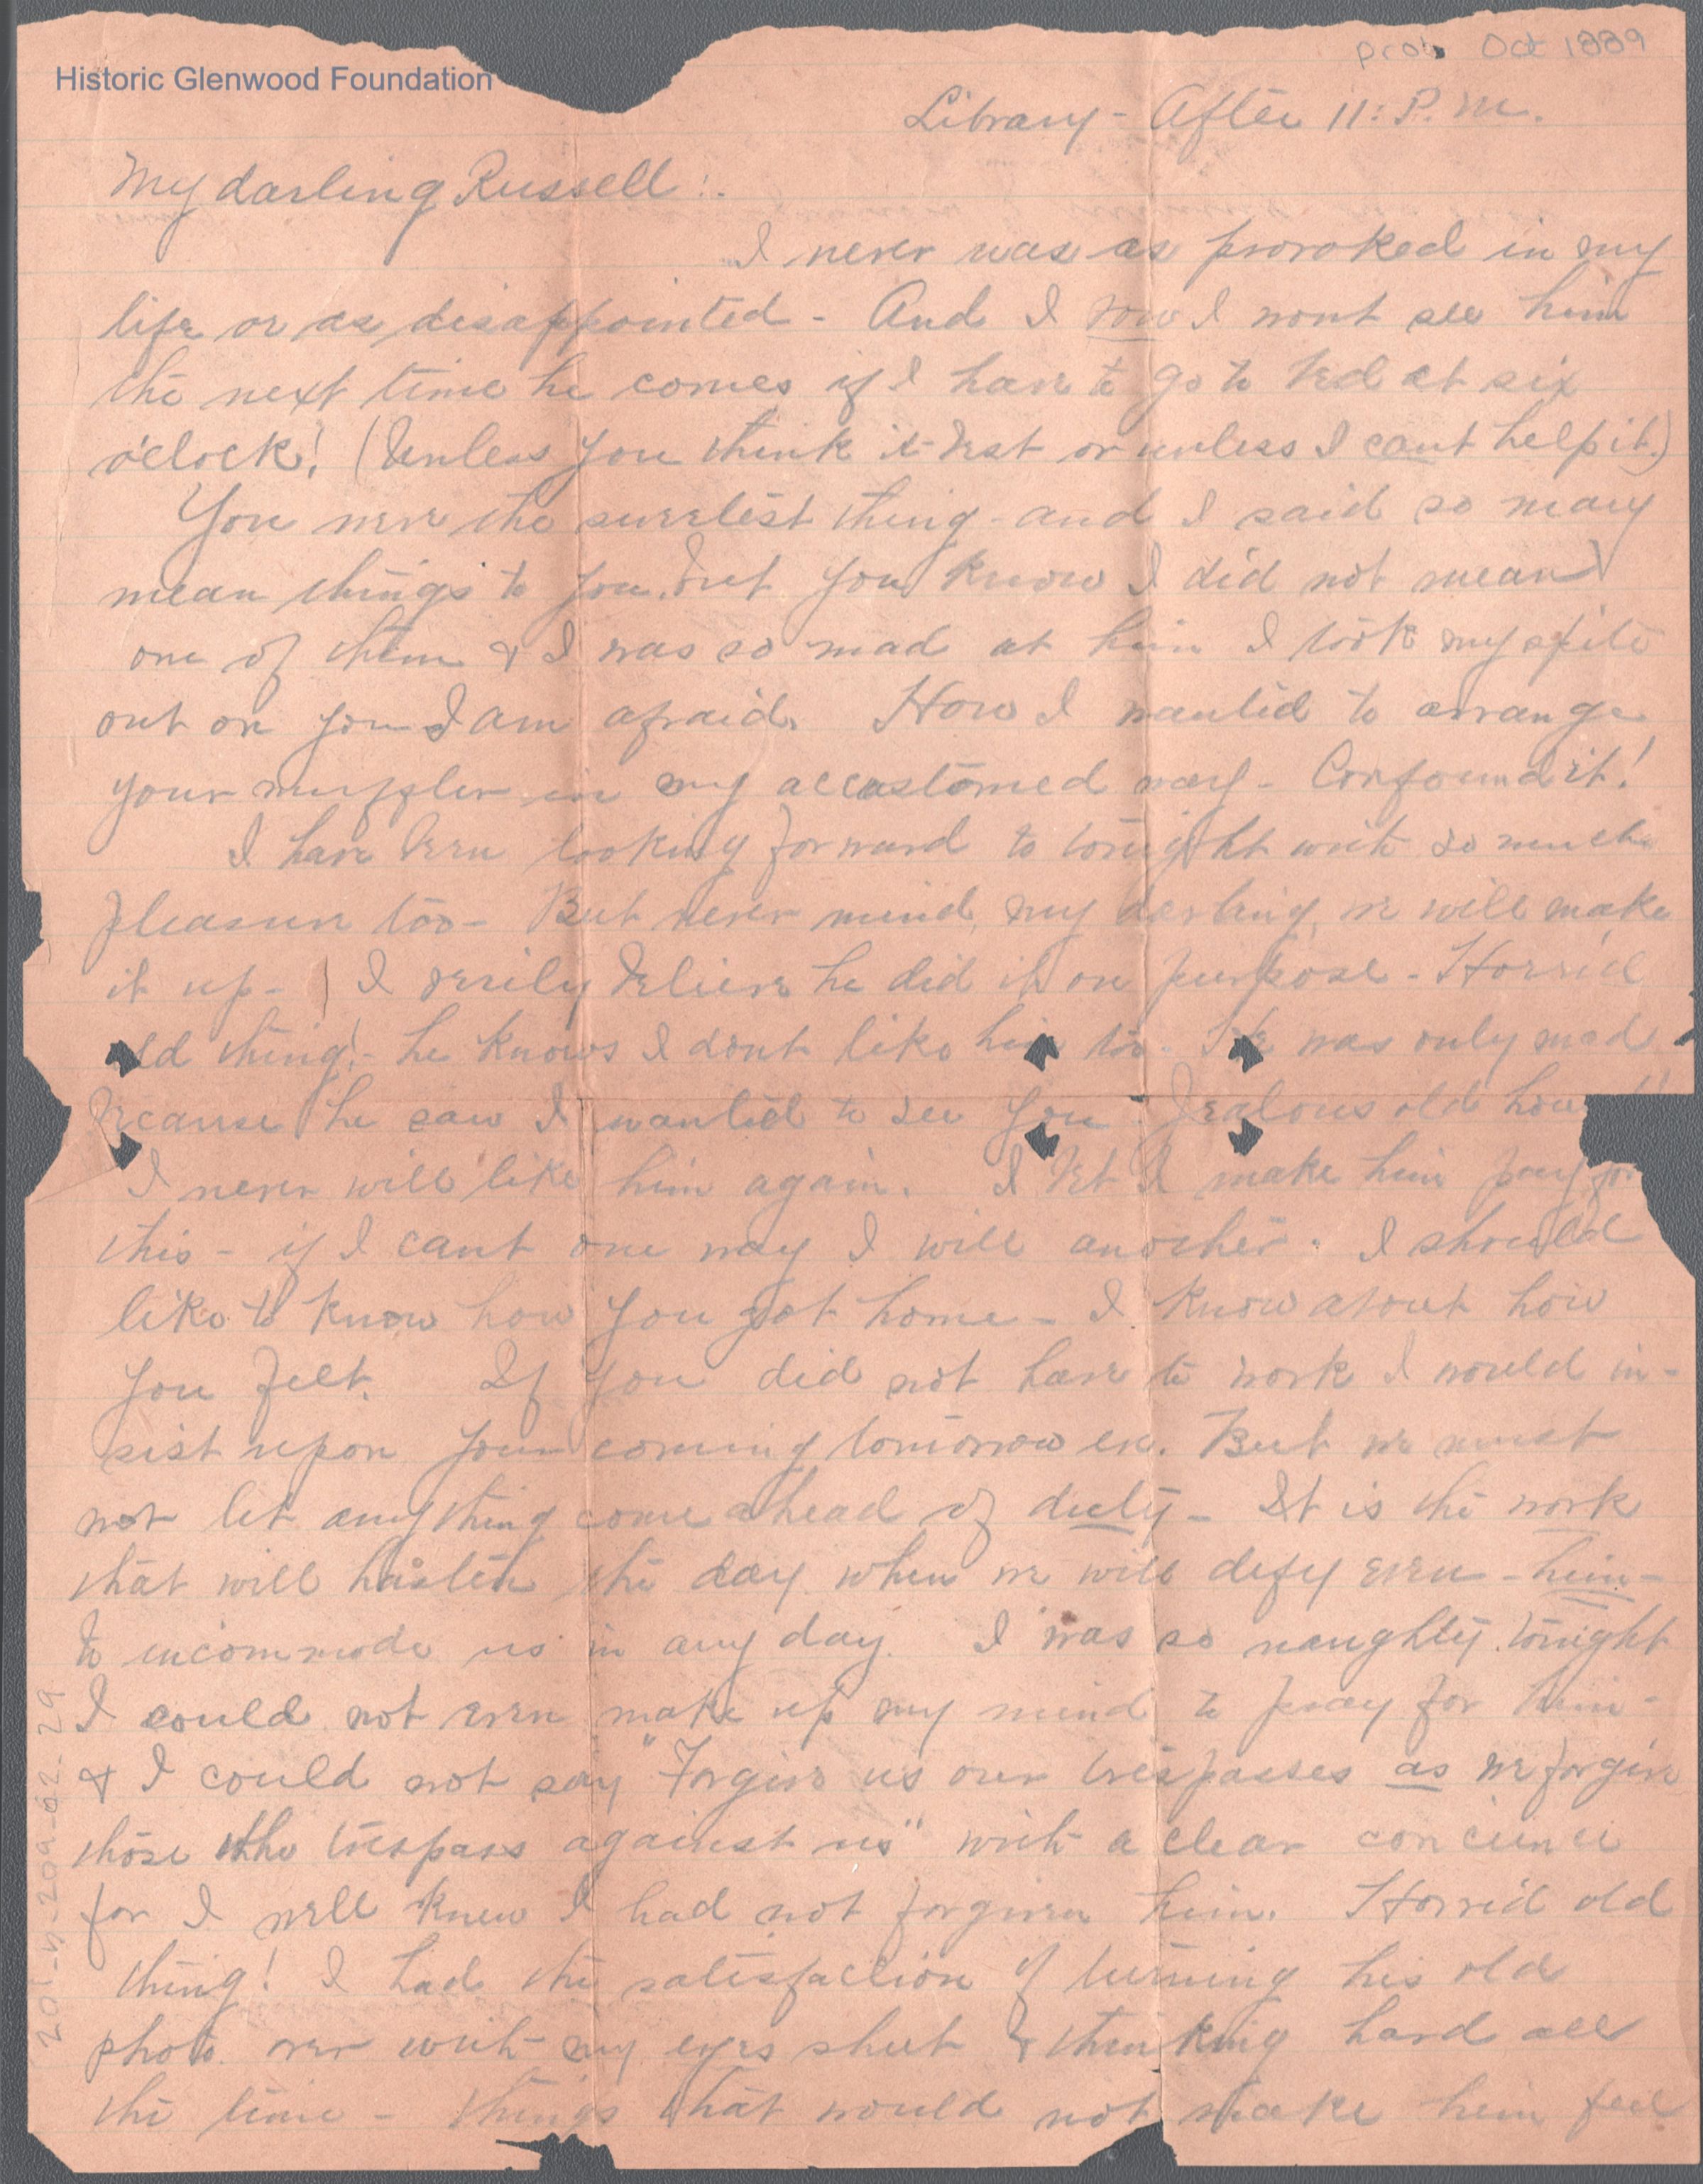 prob. Oct 1889
Historic Glenwood Foundation
Library - After 11: P.M.
My darling Russell :-
I never was as provoked in my
life or as disappointed - And I vow I wont see him
the next time he comes if I have to go to bed at six
o'clock! (Unless you think it best or unless I cant help it.)
You were the sweetest thing - and I said so many
mean things to you, but you know I did not mean
one of them & I was so mad at him I took my spite
out on you I am afraid. How I wanted to arrange
your muffler in my accustomed way - Confound it!
I have been looking forward to tonight with so much
pleasure too - But never mind, my darling, we will make
it up - I verily believe he did it on purpose - Horrid
old thing! - he knows I dont like him too - He was only mad
because he saw I wanted to see you. Jealous old
I never will like him again. I bet I make him pay for
this - if I cant one way I will another. I should
like to know how you got home - I know about how
you felt. If you did not have to work I would in-
sist upon your coming tomorrow eve. But we must
not let anything come ahead of duty - It is the work
that will hasten the day when we will defy even - him -
to incommode us in any day. I was so naughty tonight
I could not even make up my mind to pray for him -
& I could not say "Forgive us our trespasses as we forgive
those who trespass against us" with a clear concience
for I well knew I had not forgiven him. Horrid old
thing! I had the satisfaction of turning his old
photo. over with my eyes shut & thinking hard all
the time - things that would not make him feel
201-4-209-62-29